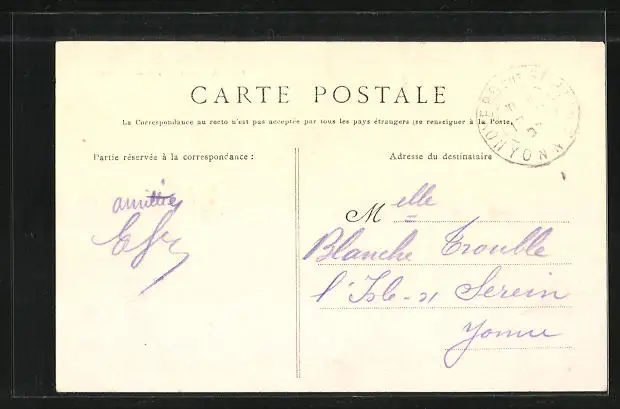 CARTE POSTALE
La Correspondance au recto n'est pas acceptée par tous les pays étrangers (se renseigner à la Poste)
Partie réservée à la correspondance :
Adresse du destinataire
amitiés
Melle
Blanche Trouble
l'Isle-s/ Serein
Yonne